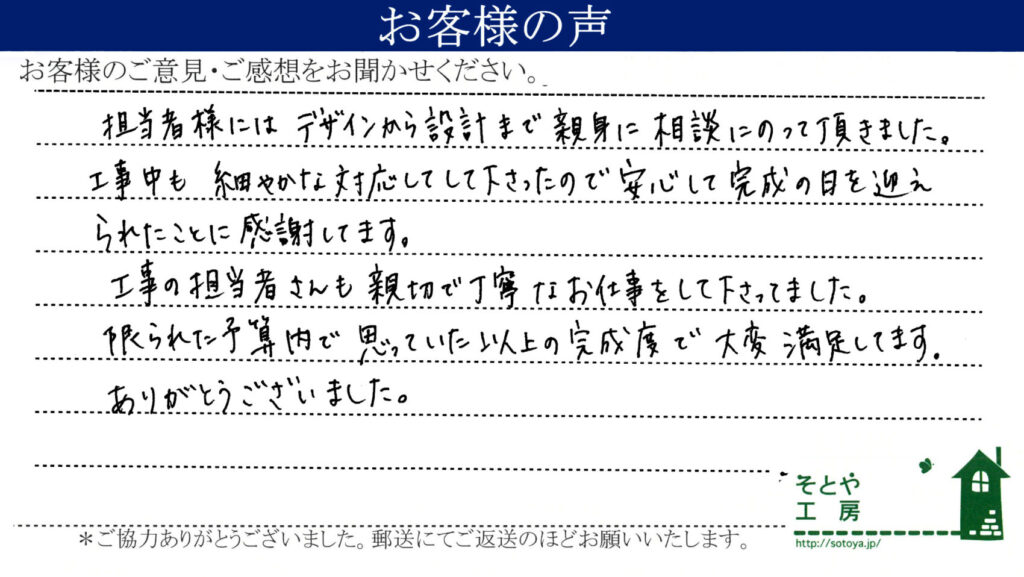 お客様の声
お客様のご意見・ご感想をお聞かせください。
担当者様には デザインから設計まで 親身に 相談にのって頂きました。
工事中も 細やかな対応してして下さったので 安心して 完成の日を 迎え
られたことに 感謝してます。
工事の担当者さんも 親切で丁寧なお仕事をして下さってました。
限られた予算内で 思っていた以上の完成度で 大変 満足してます.
ありがとうございました。
そとや
工房
http://sotoya.jp/
＊ご協力ありがとうございました。郵送にてご返送のほどお願いいたします。